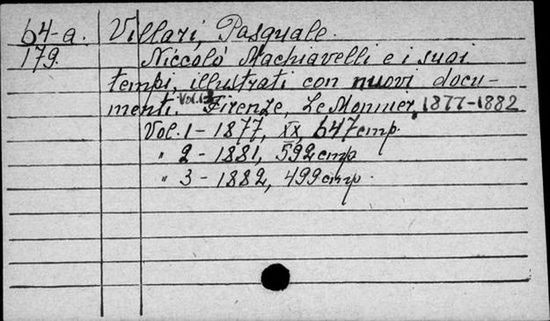 64-a. Villari, Pasquale.
179. Niccolò Machiavelli e i suoi
tempi, illustrati con nuovi docu-
menti. Vol. 1-3 Firenze, Le Monnier, 1877-1882
Vol. 1 - 1877, XX, 647 cmp.
" 2 - 1881, 592 cmp
" 3 - 1882, 499 cmp.